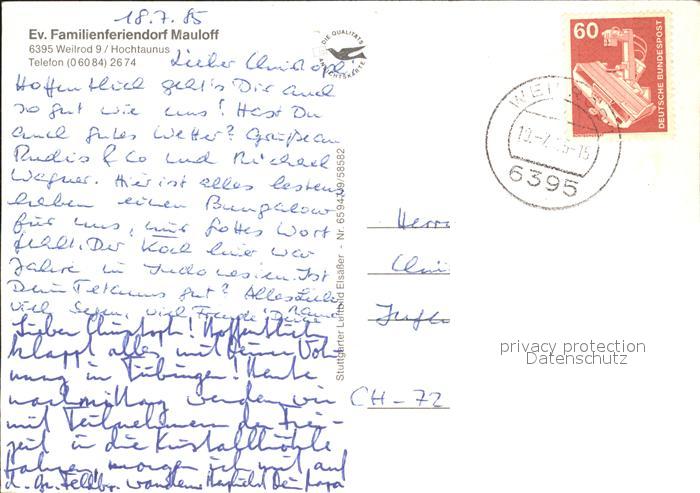 18.7.85
Ev. Familienferiendorf Mauloff
6395 Weilrod 9 / Hochtaunus
Telefon (0 60 84) 26 74
DIE QUALITÄTS
ANSICHTSKARTE
60
DEUTSCHE BUNDESPOST
6395
Lieber Christoph!
Hoffentlich geht's Dir auch
so gut wie uns! Hast Du
auch gutes Wetter? Grüße an
Rudis & Co und Michael
Wagner. Hier ist alles bestens
haben einen Bungalow
für uns, nur Gottes Wort
fehlt. Der Koch hier war
Jahre in Indonesien. Ist
Dein Tetanus gut? Alles Liebe
viel Segen, viel Freude! Deine Mama
Lieber Christoph! Hoffentlich
klappt alles mit Deiner Woh-
nung in Tübingen! Heute
nachmittag werden wir
mit Teilnehmern der Frei-
zeit in die Kristallhöhle
fahren, morgen ich mit auf
d. Gr. Feldbg. wandern Herzlichst Dein Papa
Stuttgarter Luftbild Elsäßer - Nr.
Herrn
CH-72
privacy protection
Datenschutz